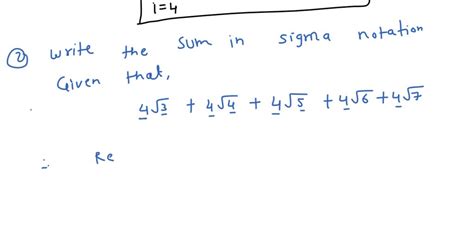 i=4
② Write the sum in sigma notation
Given that,
4√3 + 4√4 + 4√5 + 4√6 + 4√7
∴ Re